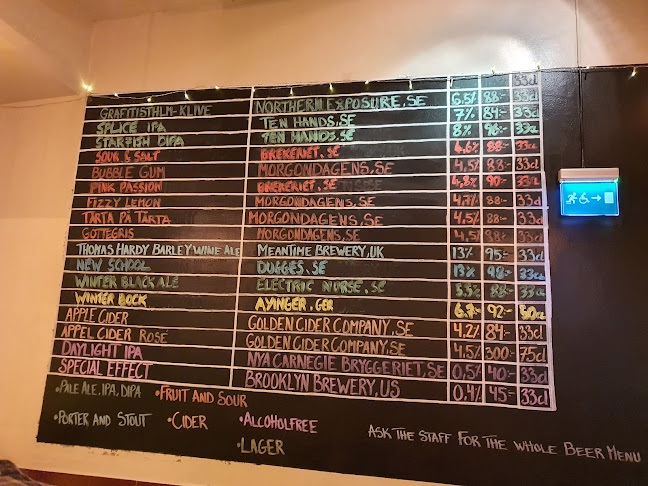 GRAFITISTHLM-KLIVE NORTHERN EXPOSURE.SE 6.5% 88:- 33cl
SPLICE IPA TEN HANDS.SE 7% 84:- 33cl
STARFISH DIPA TEN HANDS.SE 8% 96:- 33cl
SOUR & SALT BREKERIET.SE 4,6% 88:- 33cl
BUBBLE GUM MORGONDAGENS.SE 4,5% 88:- 33cl
PINK PASSION BREKERIET.SE 4,8% 90:- 33cl
FIZZY LEMON MORGONDAGENS.SE 4,7% 88:- 33cl
TÄRTA PÅ TÄRTA MORGONDAGENS.SE 4,5% 88:- 33cl
GOTTEGRIS MORGONDAGENS.SE 4,5% 88:- 33cl
THOMAS HARDY BARLEY WINE ALE MEANTIME BREWERY,UK 13% 95:- 33cl
NEW SCHOOL DUGGES.SE 13% 98:- 33cl
WINTER BLACK ALE ELECTRIC NURSE.SE 5.5% 88:- 33cl
WINTER BOCK AYINGER.GER 6.7% 92:- 50cl
APPLE CIDER GOLDEN CIDER COMPANY.SE 4,2% 84:- 33cl
APPEL CIDER ROSÉ GOLDEN CIDER COMPANY.SE 4,5% 300:- 75cl
DAYLIGHT IPA NYA CARNEGIE BRYGGERIET.SE 0,5% 40:- 33cl
SPECIAL EFFECT BROOKLYN BREWERY,US 0,4% 45:- 33cl
•PALE ALE.IPA,DIPA •FRUIT AND SOUR
•PORTER AND STOUT •CIDER •ALCOHOLFREE
•LAGER
ASK THE STAFF FOR THE WHOLE BEER MENU